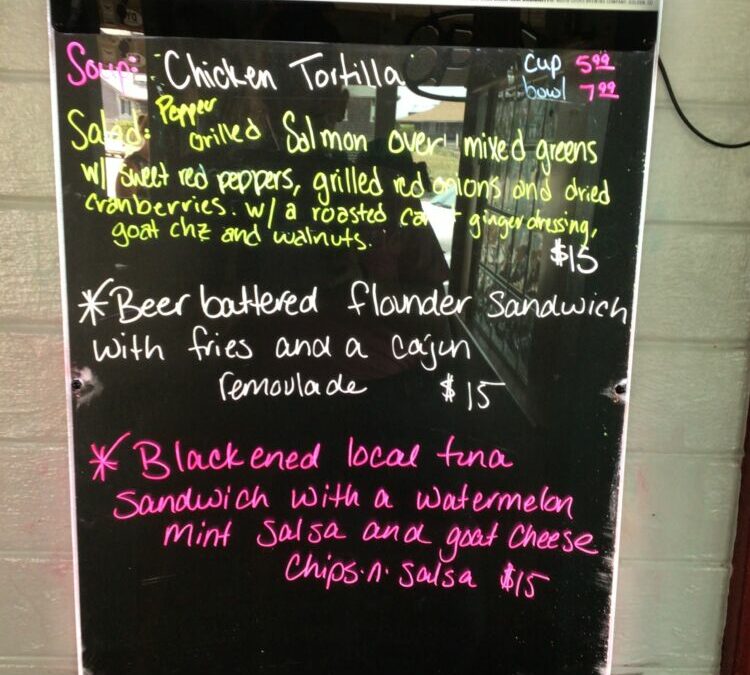 Soup: Chicken Tortilla cup 5.99
bowl 7.99
Salad: Pepper Grilled Salmon over mixed greens
w/ sweet red peppers, grilled red onions and dried
cranberries. w/ a roasted carrot ginger dressing,
goat chz and walnuts.
$15
*Beer battered flounder sandwich
with fries and a cajun
remoulade $15
*Blackened local tuna
sandwich with a watermelon
mint salsa and goat cheese
chips.n.salsa $15